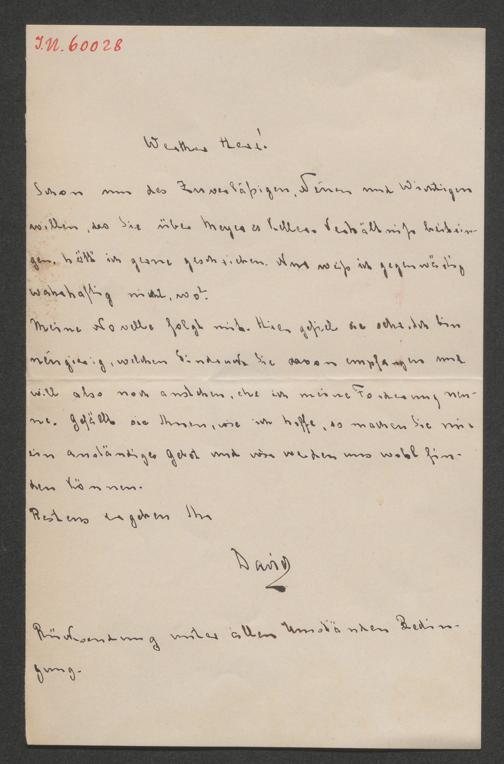 I.N. 60028
Werther Herr!
Schon um des Zuverläßigen, Neuen und Wichtigen
willen, das Sie über Meyers Kellers Verhältniß beibrin-
gen, hätt ich gerne geschrieben. Nur weiß ich gegenwärtig
wahrhaftig nicht, wo?
Meine Novelle folgt mit. Hier gefiel sie sehr. Ich bin
neugierig, welchen Eindruck Sie davon empfangen und
will also noch anstehen, ehe ich meine Forderung nen-
ne. Gefällt sie Ihnen, wie ich hoffe, so machen Sie mir
ein anständiges Gebot und wir werden uns wohl fin-
den können.
Bestens ergeben Ihr
David
Rücksendung unter allen Umständen Bedin-
gung.